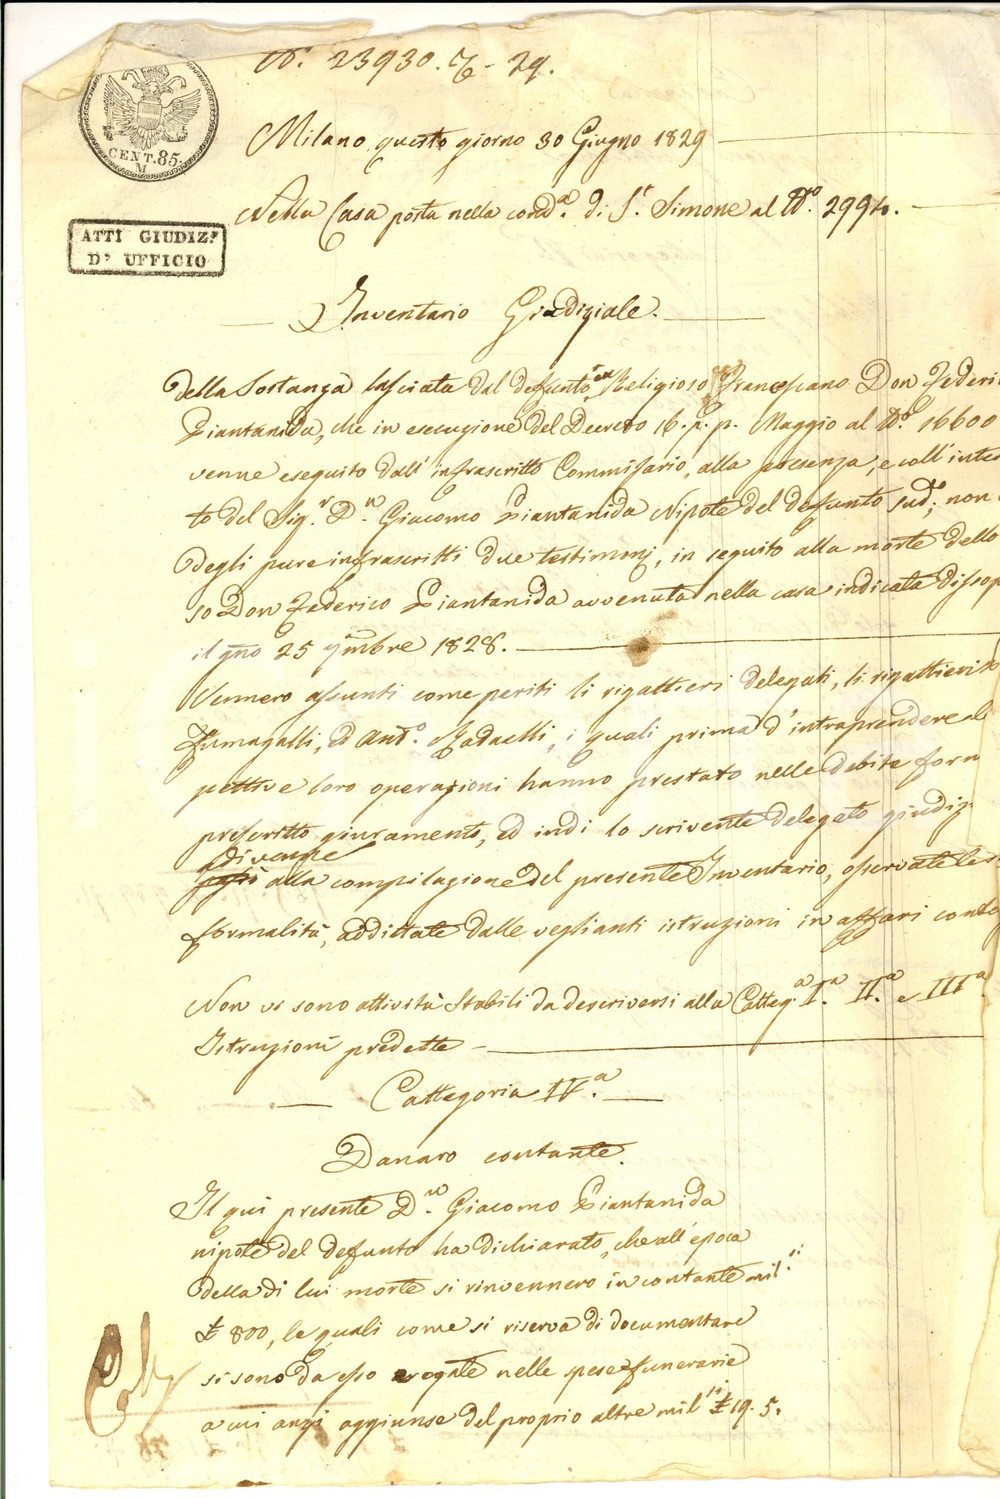 N.º 23930. - 29.
CENT. 85.
M
Milano, questo giorno 30 Giugno 1829
Nella Casa posta nella cond.ª di S.t Simone al N.º 2994.
ATTI GIUDIZ.I
D' UFFICIO
Inventario Giudiziale.
Della Sostanza lasciata dal defunto ex Religioso Francescano Don Federi
Piantanida, che in esecuzione del Decreto 16. p. p. Maggio al N.º 16600
venne eseguito dall' infrascritto Commissario, alla presenza, e coll' inte
to del Sig.r D.n Giacomo Piantanida Nipote del defunto sud.º; non
degli pure infrascritti due testimonj, in seguito alla morte dello
so Don Federico Piantanida avvenuta nella casa indicata dissop
il gno 25 9mbre 1828.
Vennero assunti come periti li rigattieri delegati, li rigattieri
Fumagalli, ed Ant.º Radaelli, i quali prima d' intraprendere le
pettive loro operazioni hanno prestato nelle debite form
prescritto giuramento, ed indi lo scrivente delegato giudiz
divenne
passò alla compilazione del presente Inventario, osservate le
formalità, addittate dalle veglianti istruzioni in affari
Non vi sono attività Stabili da descriversi alla Catteg.ª I.ª II.ª e III.ª
Istruzioni predette
Cattegoria IV.ª
Danaro contante.
Il qui presente D.n Giacomo Piantanida
nipote del defunto ha dichiarato, che all' epoca
della di lui morte si rinvennero in contante mil.si
£ 800, le quali come si riserva di documentare
si sono da esso erogate nelle spese funerarie
a cui anzi aggiunse del proprio altre mil.si £ 19. 5.